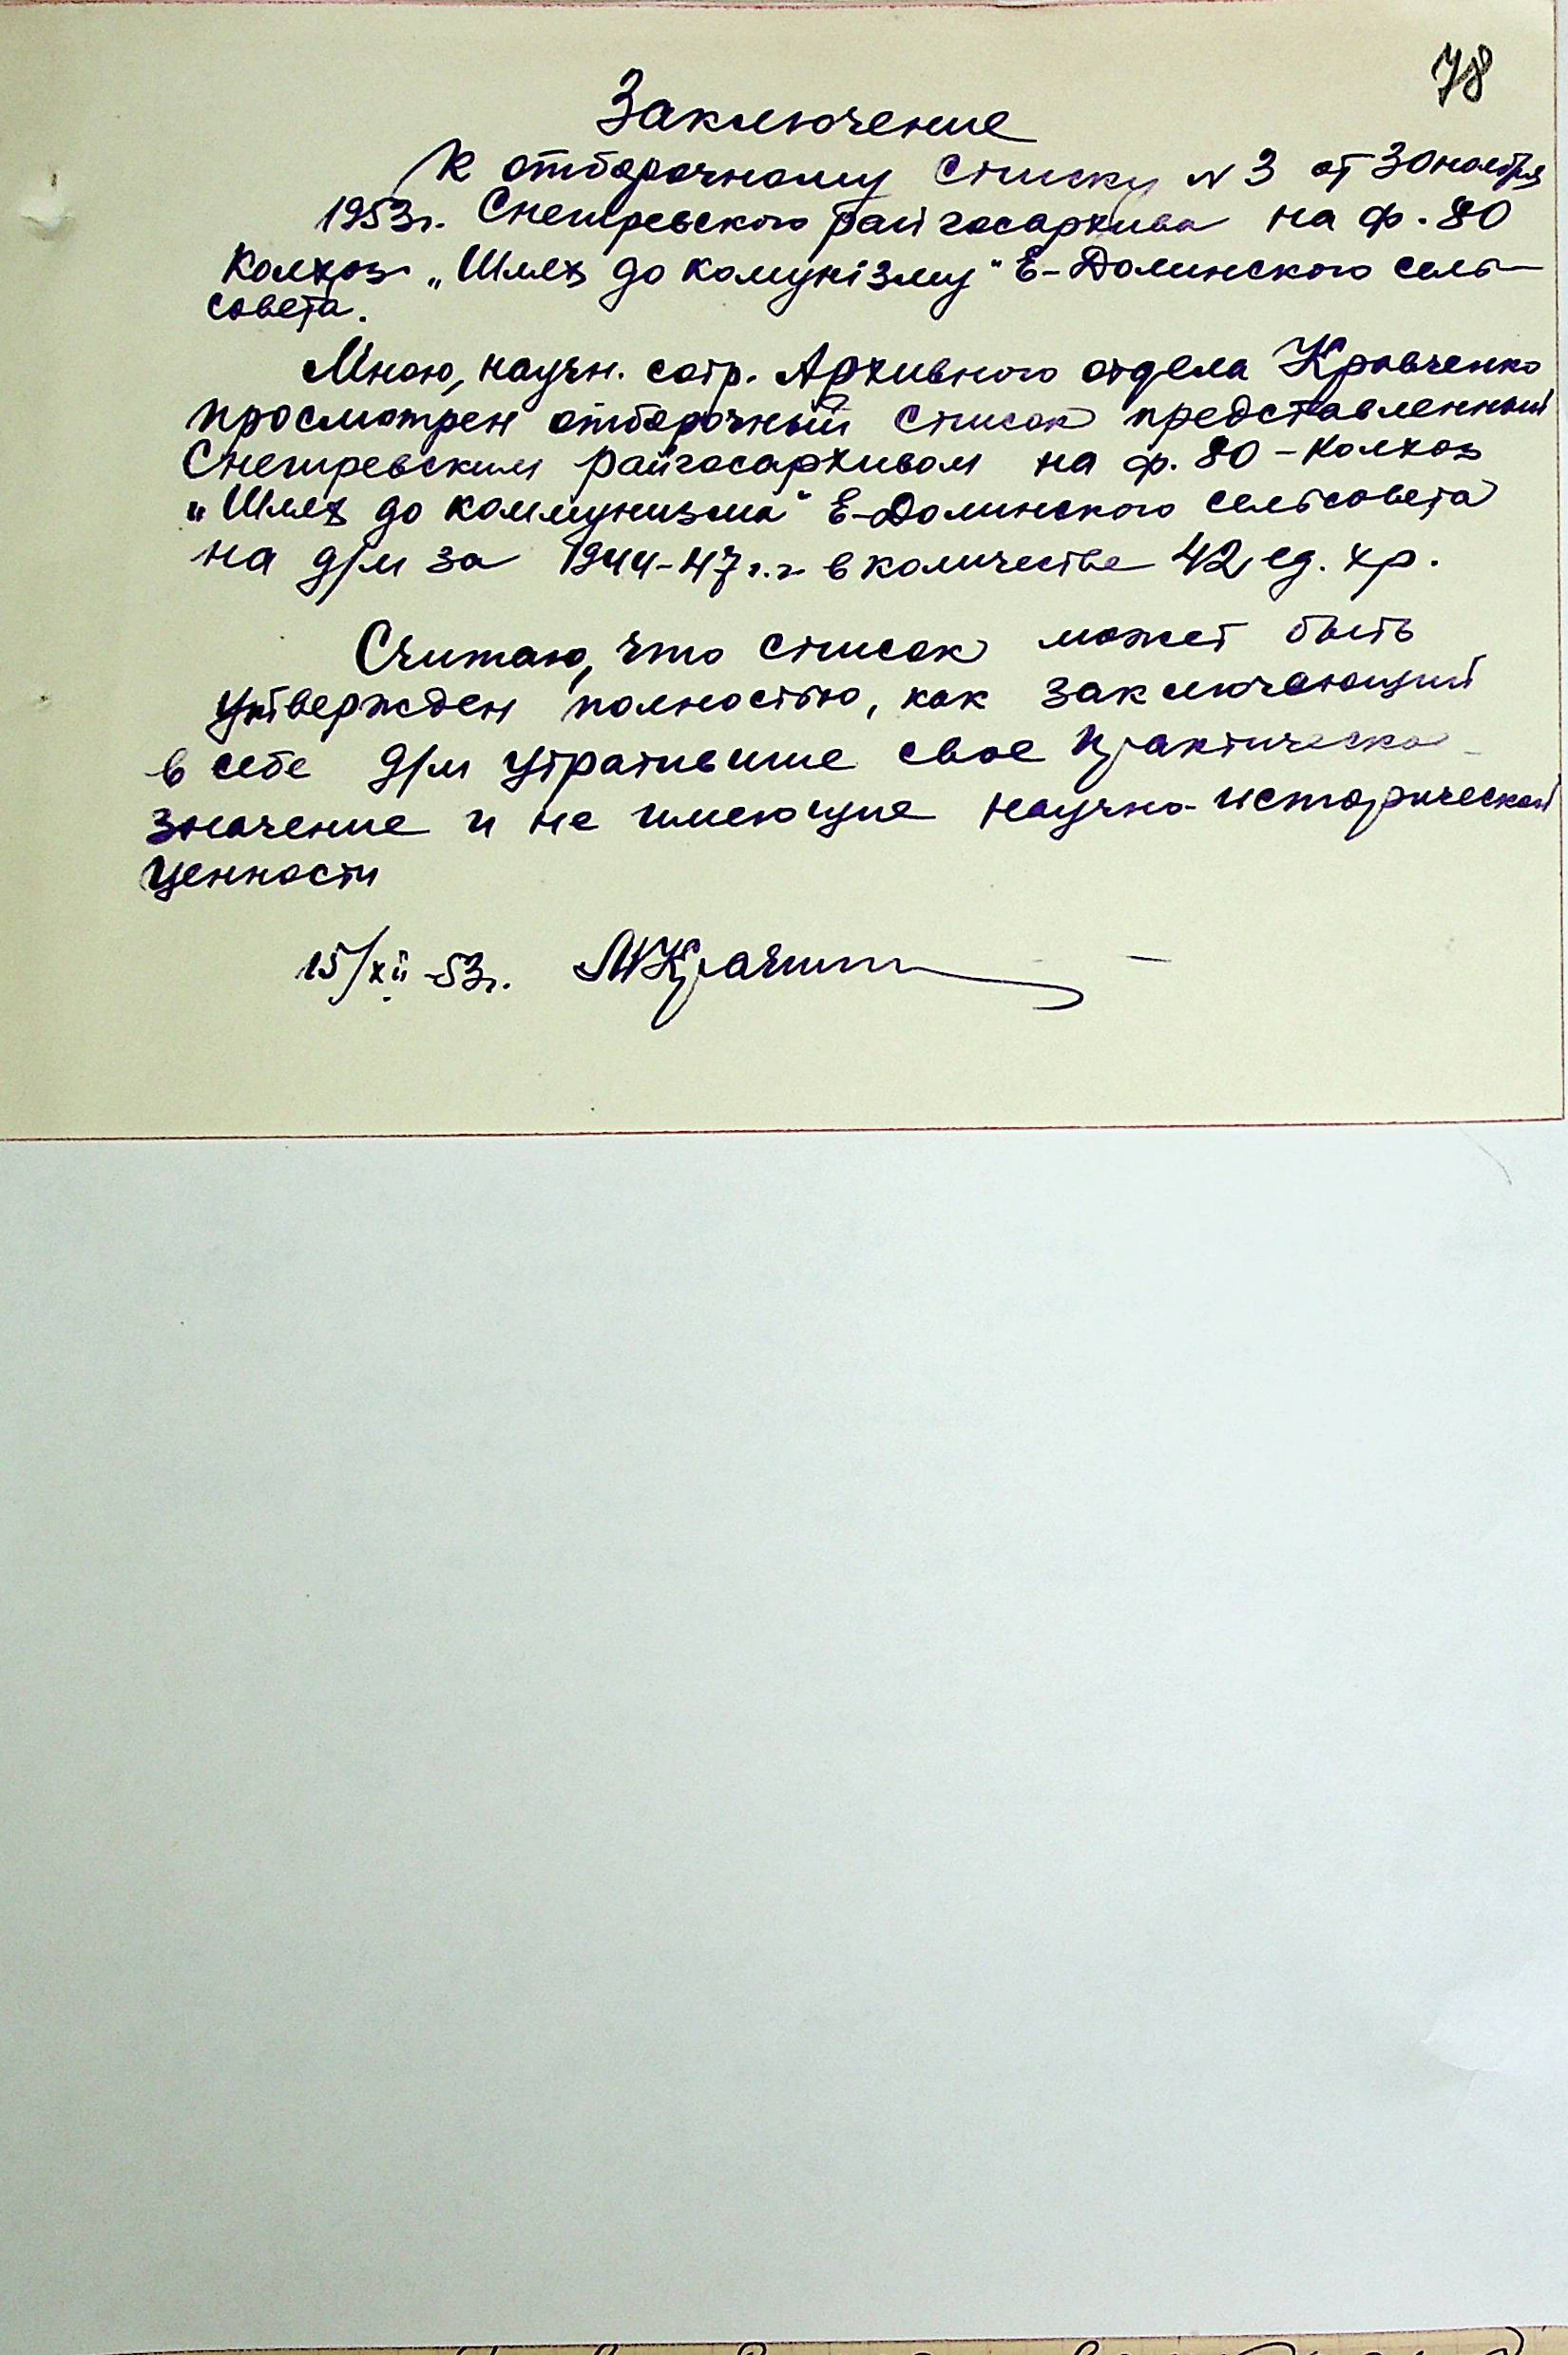 78
Заключение
К отборочному списку N 3 от 30 ноября
1953г. Снегиревского райгосархива на ф. 80
Колхоз „Шлях до комунізму" Е-Долинского сель-
совета.
Мною, научн. сотр. Архивного отдела Кравченко
просмотрен отборочный список представленный
Снегиревским райгосархивом на ф. 80 - Колхоз
„Шлях до коммунизма" Е-Долинского сельсовета
на д/м за 1944-47 г.г. в количестве 42 ед. хр.
Считаю, что список может быть
утвержден полностью, как заключающий
в себе д/м утратившие свое практическое
значение и не имеющие научно-исторической
ценности
15/XII-53г.